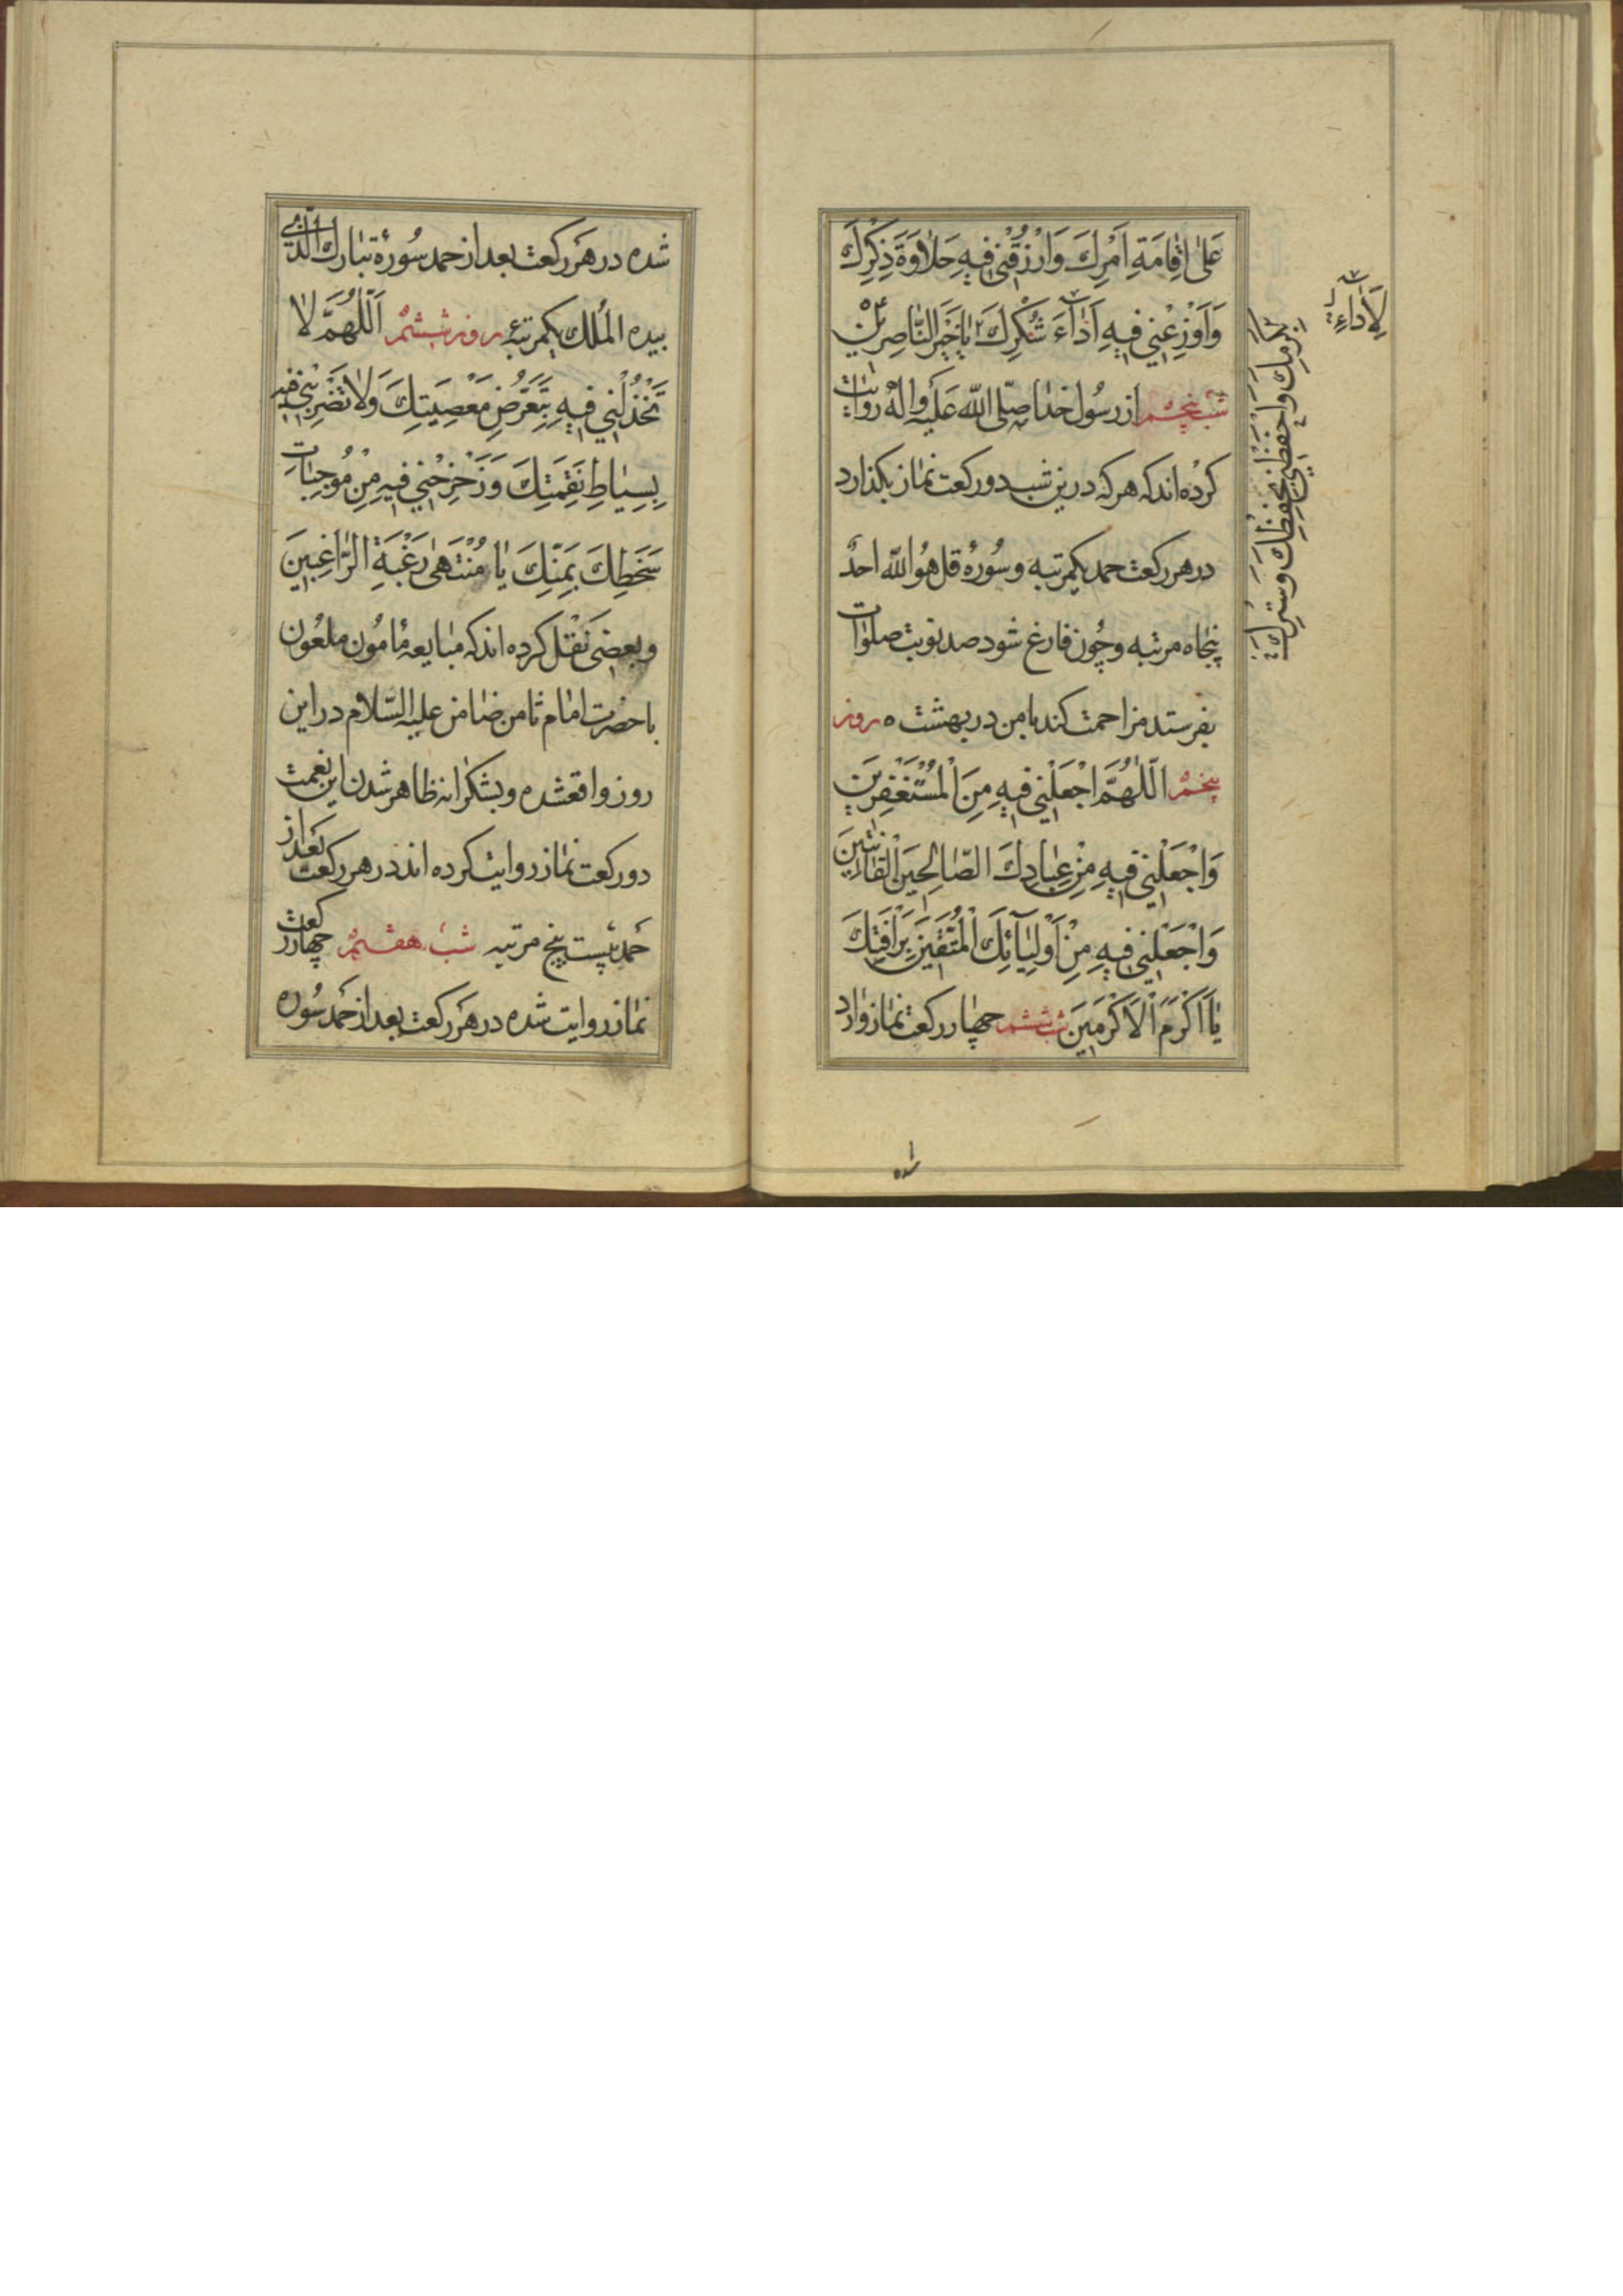 عَلىٰ اِقٰامَةِ اَمْرِكَ وَارْزُقْنی فیهِ حَلاٰوَةَ ذِكْرِكَ
وَاَوْزِعْنی فیهِ اَدٰآءَ شُكْرِكَ یٰا خَیْرَ النّٰاصِرینَ
شب پنجم از رسُول خدا صلّی الله عَلَیه واله روایت
كرْده اند كه هركه درین شب دوركعت نماز بكذارد
در هر ركعت حمد یكمرتبه وسُورهٔ قل هُو الله احدٌ
پنجاه مرتبه وچُون فارغ شود صد نوبت صلوات
بفرستد مزاحمت كند با من در بهشت ه روز
پنجم اَللّٰهُمَّ اجْعَلْنی فیهِ مِنَ الْمُسْتَغْفِرینَ
وَاجْعَلْنی فیهِ مِنْ عِبٰادِكَ الصّٰالِحینَ الْقٰانِتینَ
وَاجْعَلْنی فیهِ مِنْ اَوْلِیٰآئِكَ الْمُتَّقینَ بِرَاْفَتِكَ
یٰا اَكْرَمَ الْاَكْرَمینَ شب ششم چهار ركعت نماز وارد
لِاَدٰاءِ
بِكَرَمِكَ وَاحْفَظْنی بِحِفْظِكَ وَسَتْرِكَ
شده
شده در هَر ركعت بعد از حمد سُورهٔ تبارك الّذی
بیده المُلك یكمرتبه روز ششم اَللّٰهُمَّ لاٰ
تَخْذُلْنی فیهِ بِتَعَرُّضِ مَعْصِیَتِكَ وَلاٰ تَضْرِبْنی فیهِ
بِسِیٰاطِ نَقِمَتِكَ وَزَحْزِحْنی فیهِ مِنْ مُوجِبٰاتِ
سَخَطِكَ بِمَنِّكَ یٰا مُنْتَهىٰ رَغْبَةِ الرّٰاغِبینَ
وبعضی نَقْل كرده اند كه مبایعه مٔامُون ملعُون
با حضرت امام ثامن ضامن علیه السّلام در این
روز واقعشده وبشكرانه ظاهر شدن این نعمت
دو ركعت نماز روایت كرده اند در هر ركعت بعد از
حمد بیست پنج مرتبه شب هفتم چهار ركعت
نماز روایت شده در هَر ركعت بعد از حَمد سُوره